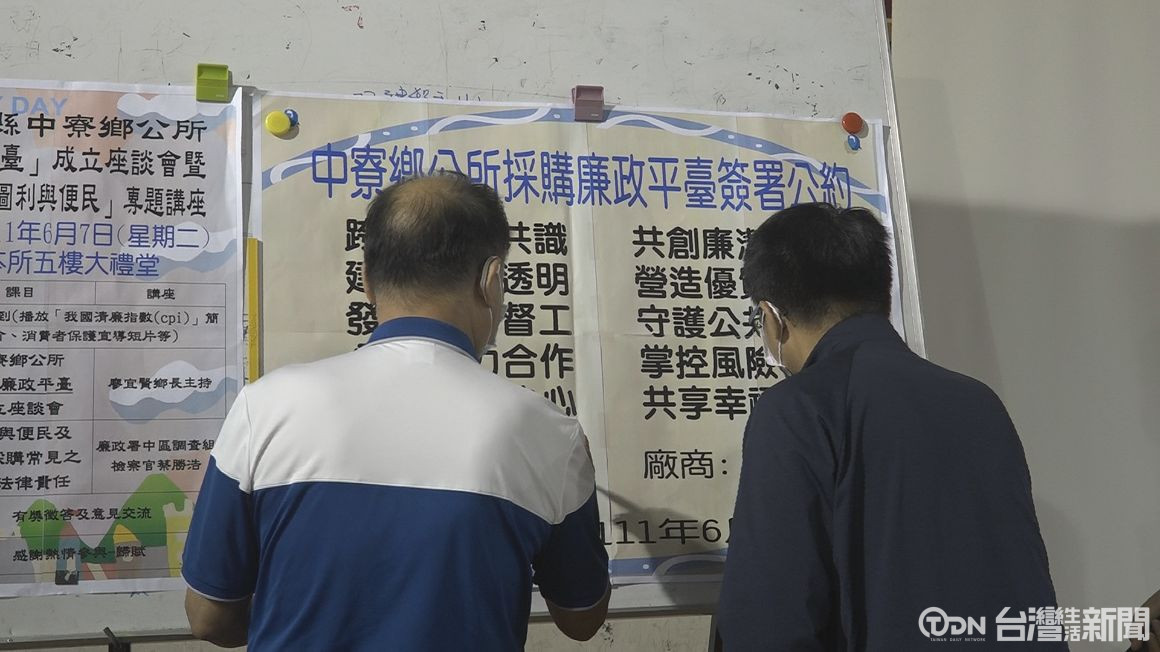 DAY
縣中寮鄉公所
臺」成立座談會暨
圖利與便民」專題講座
11年6月7日(星期二)
本所五樓大禮堂
課目 講座
到(播放「我國清廉指數(cpi)」簡
、消費者保護宣導短片等)
寮鄉公所
廉政平臺
立座談會
廖宜賢鄉長主持
與便民及
採購常見之
法律責任
廉政署中區調查組
檢察官蔡勝浩
有獎徵答及意見交流
感謝熱情參與-歸賦
中寮鄉公所採購廉政平臺簽署公約
跨 共識
建 透明
發 督工
力合作
心
共創廉潔
營造優質
守護公共
掌控風險
共享幸福
廠商:
111年6
TDN
TAIWAN DAILY NETWORK
台灣生活新聞